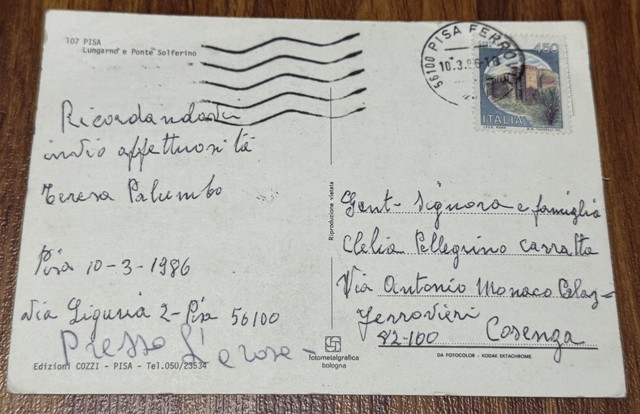 107 PISA
Lungarno e Ponte Solferino
Ricordandoti
invio affettuosità
Teresa Palumbo
Pisa 10-3-1986
Via Liguria 2-Pisa 56100
Presso
Edizioni COZZI - PISA - Tel.050/23534
Riproduzione vietata
fotometalgrafica
bologna
56100 PISA FERROVIA
10.3.86-18
450
ITALIA
Gent. Signora e famiglia
Clelia Pellegrino Carratta
Via Antonio Monaco Palaz-
Ferrovieri
82-100 Cosenza
DA FOTOCOLOR - KODAK EKTACHROME